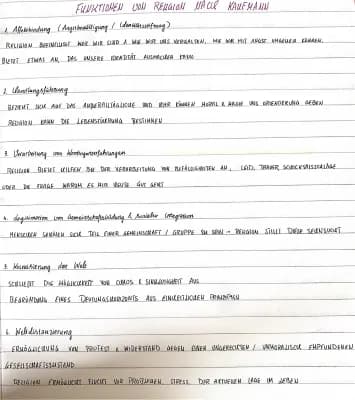 FUNKTIONEN VON RELIGION NACH KAUFMANN
1. Affektbindung (Angstbewältigung / Identitätsstiftung)
RELIGION BEEINFLUSST WER WIR SIND & WIE WIR UNS VERHALTEN, WIE WIR MIT ANGST UMGEHEN KÖNNEN,
BIETET ETWAS AN, DAS UNSERE IDENTITÄT AUSMACHEN KANN
2. Handlungsführung
BEZIEHT SICH AUF DAS AUßERALLTÄGLICHE UND WIR KÖNNEN MORAL & ORIENTIERUNG GEBEN
RELIGION KANN DIE LEBENSFÜHRUNG BESTIMMEN
3. Verarbeitung von Kontingenzerfahrungen
RELIGION BIETET HILFEN BEI DER VERARBEITUNG VON AN, LEID, TRAUER, SCHICKSALSSCHLÄGE
ODER DIE FRAGE WARUM ES MIR HEUTE GUT GEHT
4. Legitimation von Gemeinschaftsbildung & sozialer Integration
MENSCHEN SEHNEN SICH TEIL EINER GEMEINSCHAFT / GRUPPE ZU SEIN → RELIGION STILLT DIESE SEHNSUCHT
5. Kosmisierung der Welt
SCHLIEßT DIE MÖGLICHKEIT VON CHAOS & SINNLOSIGKEIT AUS
BEGRÜNDUNG EINES DEUTUNGSHORIZONTS AUS EINHEITLICHEN PRINZIPIEN
6. Weltdistanzierung
ERMÖGLICHUNG VON PROTEST & WIDERSTAND GEGEN EINEN UNGERECHTEN / UNMORALISCH EMPFUNDENEN
GESELLSCHAFTSZUSTAND
RELIGION ERMÖGLICHT FLUCHT VOR PROBLEMEN, STRESS, DER AKTUELLEN LAGE IM LEBEN